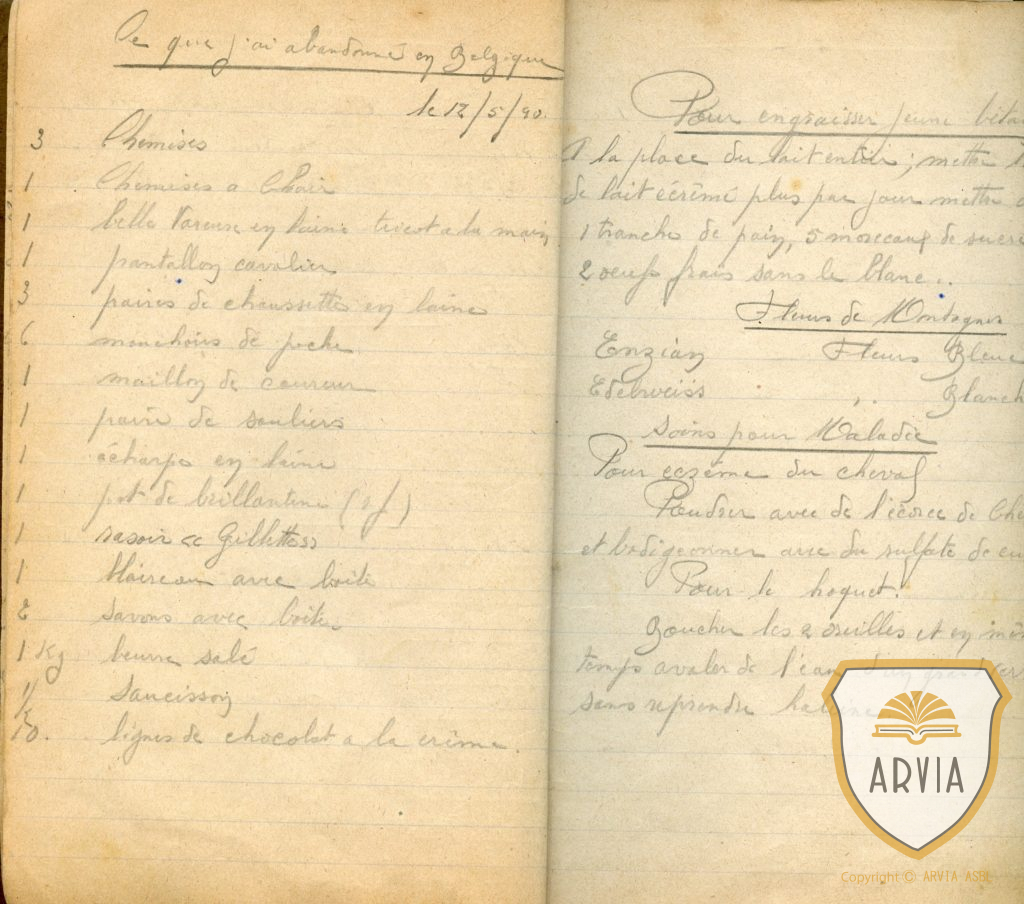 Ce que j'ai abandonné en Belgique
le 12/5/40.
3 Chemises
1 Chemises a Chair
1 belle Vareuse en laine tricot a la main
1 pantallon cavalier
3 paires de chaussettes en laine
6 mouchoirs de poche
1 maillon de coureur
1 paire de souliers
1 écharpe en laine
1 pot de brillantine
1 rasoir "Gillettes"
1 blaireau avec boite
2 savons avec boite
1 Kg beurre salé
1/2 Saucisson
10. lignes de chocolat a la crème.
Pour engraisser jeune
A la place du lait entier; mettre
de lait écrémé plus par jour mettre
1 tranche de pain, 5 morceaux de sucre
2 oeufs frais sans le blanc..
Fleurs de Montagnes
Enzian Fleurs Bleue
Edelweiss ,, Blanch
Soins pour Maladie
Pour eczéma du cheval
Poudrer avec de l'écorce de
et badigeonner avec du sulfate de
Pour le hoquet.
Boucher les 2 oreilles et en
temps avaler de l'eau d'un grand
sans reprendre
ARVIA
Copyright © ARVIA ASBL